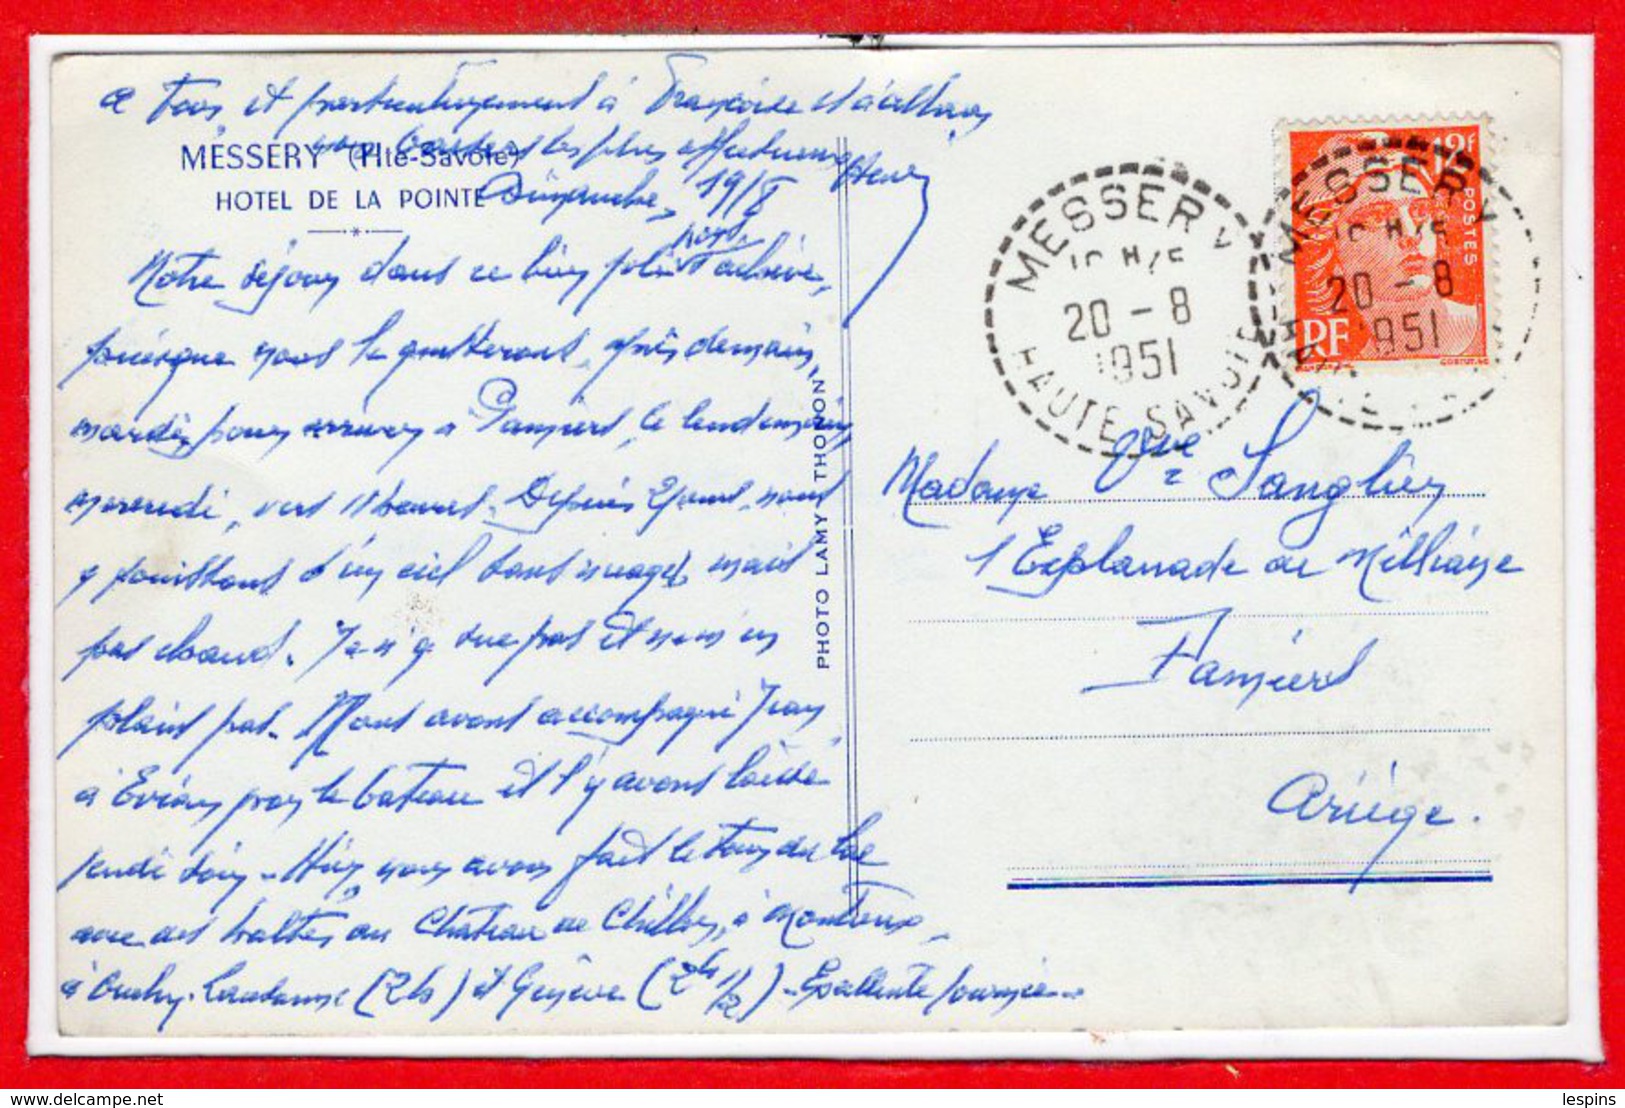 à tous et particulièrement à Françoise et à
vous les plus affectueux
MESSERY (Hte-Savoie)
HOTEL DE LA POINTE
Dimanche, 19/8
Notre séjour dans ce bien plaisant achève,
puisque nous le quitterons, après demain,
mardi, pour arriver à Pamiers, le lendemain
mercredi, vers 11 heures. Depuis 2 jours, nous
y jouissons d'un ciel sans nuages, mais
pas chaud. Je n'y sue pas et ne m'en
plains pas. Nous avons accompagné Jean
à Evian par le bateau et l'y avons laissé
jeudi soir. Hier, nous avons fait le tour du Lac
avec des haltes au Château de Chillon, à Montreux,
à Ouchy-Lausanne (2h) et Genève (2h 1/2). Excellente journée.
PHOTO LAMY THONON
MESSERY
10 H/15
20 - 8
1951
HAUTE SAVOIE
MESSERY
10 H/15
20 - 8
1951
12F
POSTES
RF
Madame Vve Sanglier
1 Esplanade de Milliane
Pamiers
Ariège.
lespins